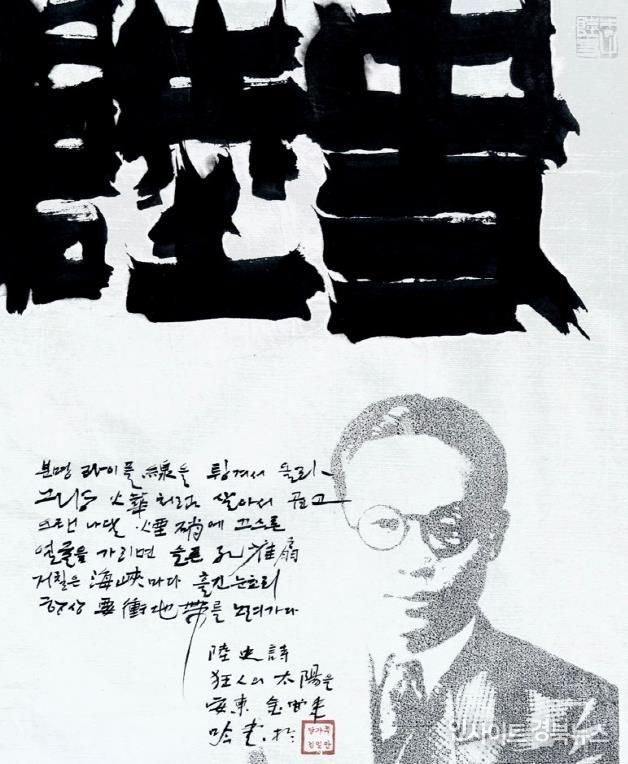 분명 라이플 線을 튕겨서 올라
그냥 火華처럼 살아서 곱고
오랜 나달 煙硝에 끄스른
얼굴을 가리면 슬픈 孔雀扇
거칠은 海峽마다 흘긴 눈초리
항상 要衝地帶를 노려가다
陸史詩
狂人의 太陽을
安東
인사이트 경북뉴스